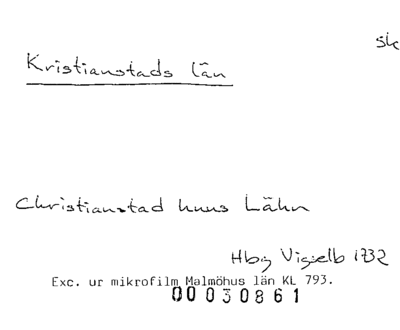 sk
Kristianstads län
Christianstad huus Lähn
Hbg Vigselb 1732
Exc. ur mikrofilm Malmöhus län KL 793.
00030861